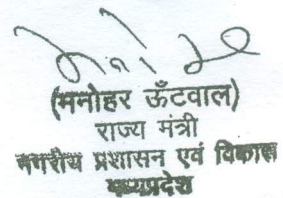 (मनोहर ऊँटवाल)
राज्य मंत्री
नगरीय प्रशासन एवं विकास
मध्यप्रदेश